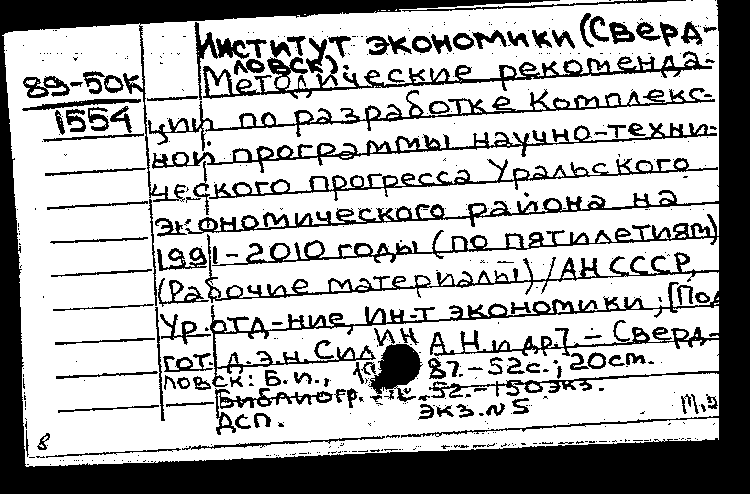 Институт экономики (Сверд-
ловск).
89-50к
1554
Методические рекоменда-
ции по разработке Комплекс-
ной программы научно-техни-
ческого прогресса Уральского
экономического района на
1991-2010 годы (по пятилетиям)
(Рабочие материалы) / АН СССР,
Ур. отд-ние, Ин-т экономики; [Под
гот. д.э.н. Силин А.Н. и др.]. - Сверд-
ловск: Б.и., 1987. - 52с.; 20см.
Библиогр. 52. - 150 экз.
ДСП. экз. N5
8